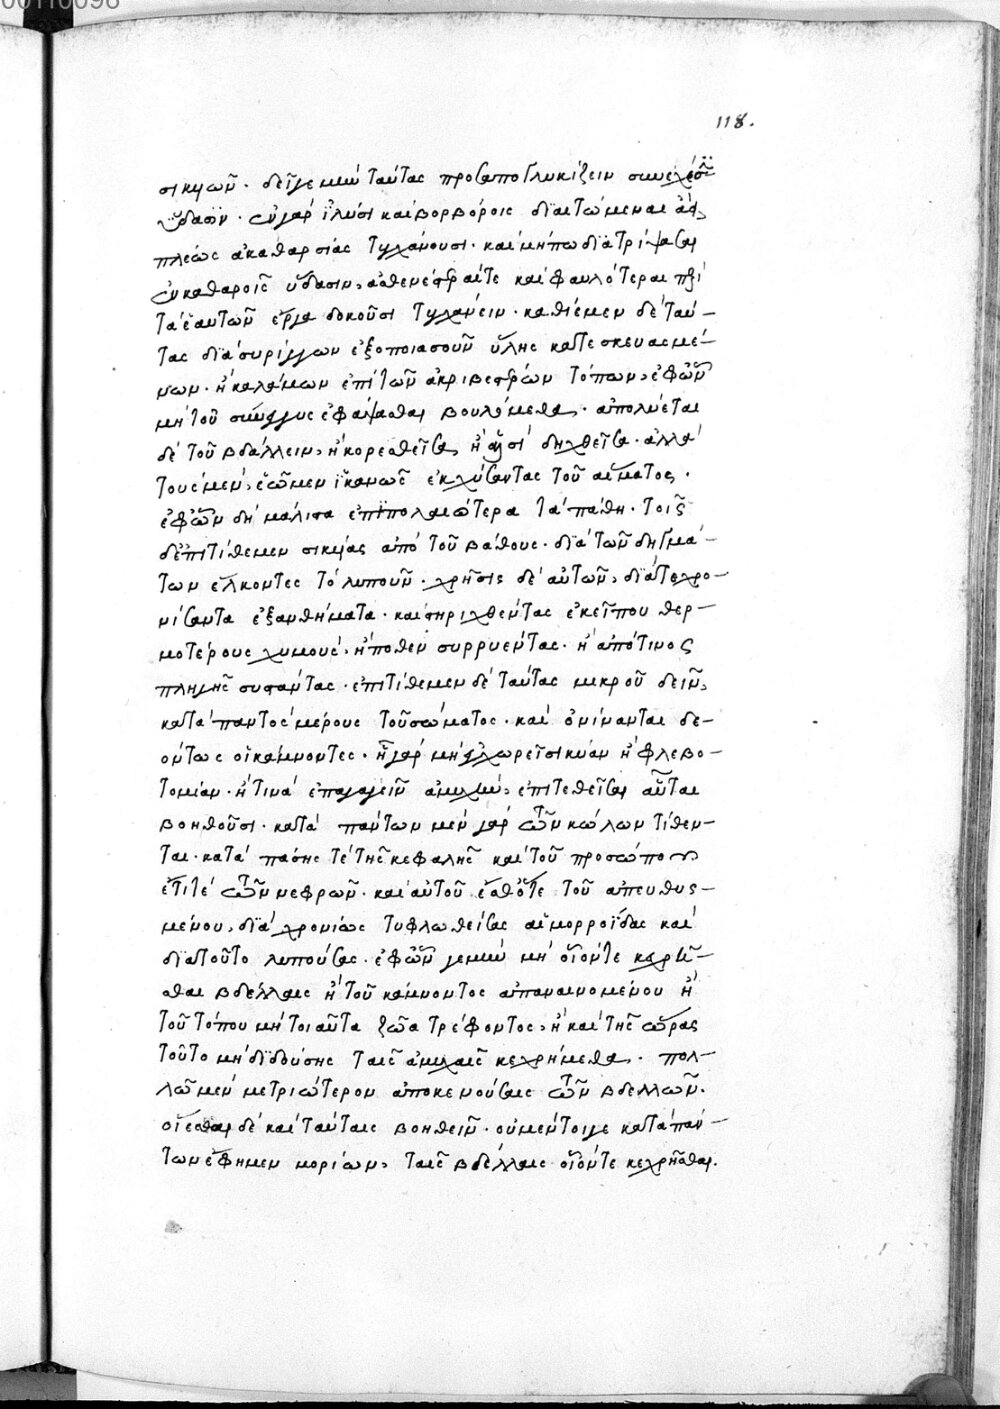 00110098
118.
σικυῶν. δεῖ γε μὴν ταύτας προσαπογλυκίζειν συνεχέσιν
ὕδασιν. ἐν γὰρ ἰλύσι καὶ βορβόροις διαιτώμεναι
πλέως ἀκαθαρσίας τυγχάνουσι. καὶ μήπω διατρίψασαι
ἐν καθαροῖς ὕδασιν, ἀσθενέστεραί τε καὶ φαυλότεραι περὶ
τὰ ἑαυτῶν ἔργα δοκοῦσι τυγχάνειν. καθίεμεν δὲ ταύ-
τας διὰ συρίγγων ἐξ ὁποιασοῦν ὕλης κατεσκευασμέ-
νων. ἢ καλάμων ἐπὶ τῶν ἀκριβεστέρων τόπων, ἐφ' ὧν
μὴ τοῦ σύνεγγυς ἐφάψασθαι βουλόμεθα. ἀπολύεται
δὲ τοῦ βδάλλειν, ἢ κορεσθεῖσα, ἢ ἁλσὶ δηχθεῖσα. ἀλλὰ
τοὺς μὲν, ἐῶμεν ἱκανῶς ἐκλύσαντας τοῦ αἵματος.
ἐφ' ὧν δὴ μάλιστα ἐπιπολαιότερα τὰ πάθη. τοῖς
δ' ἐπιτίθεμεν σικύας ἀπὸ τοῦ βάθους. διὰ τῶν δηγμά-
των ἕλκοντες τὸ λυποῦν. χρῆσις δὲ αὐτῶν, διά τε χρο-
νίσαντα ἐξανθήματα. καὶ στηριχθέντας ἐκεῖ που θερ-
μοτέρους χυμοὺς, ἢ ποθεν συρρυέντας. ἢ ἀπό τινος
πληγῆς συστάντας. ἐπιτίθεμεν δὲ ταύτας μικροῦ δεῖν,
κατὰ παντὸς μέρους τοῦ σώματος. καὶ ὀνίνανται δε-
όντως οἱ κάμνοντες. ἢ γὰρ μὴ χωρεῖ σικύαν ἢ φλεβο-
τομίαν. ἤ τινα ἐπαγαγεῖν ἀμυχὴν, ἐπιτεθεῖσαι αὗται
βοηθοῦσι. κατὰ πάντων μὲν γὰρ τῶν κώλων τίθεν-
ται. κατὰ πάσης τε τῆς κεφαλῆς καὶ τοῦ προσώπου
ἔτι τε τῶν νεφρῶν. καὶ αὐτοῦ ἔσθ' ὅτε τοῦ ἀπευθυς-
μένου, διὰ χρονίως τυφλωθείσας αἱμορροΐδας καὶ
διατοῦτο λυπούσας. ἐφ' ὧν γε μὴν μὴ οἷόν τε χρῆ-
σθαι βδέλλαις ἢ τοῦ κάμνοντος ἀπαναινομένου ἢ
τοῦ τόπου μὴ τοιαῦτα ζῶα τρέφοντος, ἢ καὶ τῆς ὥρας
τοῦτο μὴ διδούσης ταῖς ἀμυχαῖς κεχρήμεθα. πολ-
λῶ μὲν μετριώτερον ἀποκενούσαις τῶν βδελλῶν.
οἴεσθαι δὲ καὶ ταύταις βοηθεῖν. οὐ μέντοιγε κατὰ πάν-
των ἔφημεν μορίων, ταῖς βδέλλαις οἷόν τε κεχρῆσθαι.